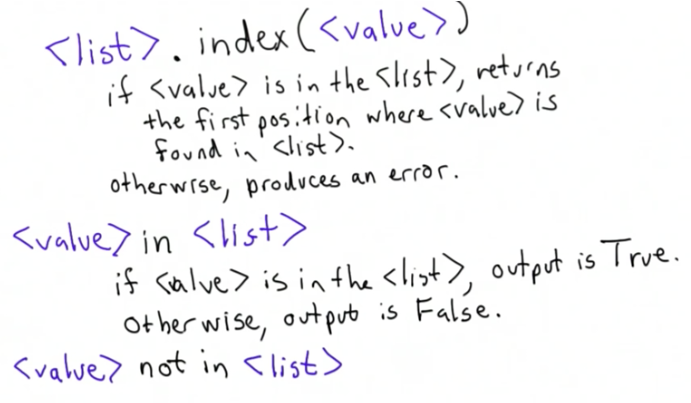 <list>.index(<value>)
if <value> is in the <list>, returns
the first position where <value> is
found in <list>.
otherwise, produces an error.
<value> in <list>
if <value> is in the <list>, output is True.
Otherwise, output is False.
<value> not in <list>